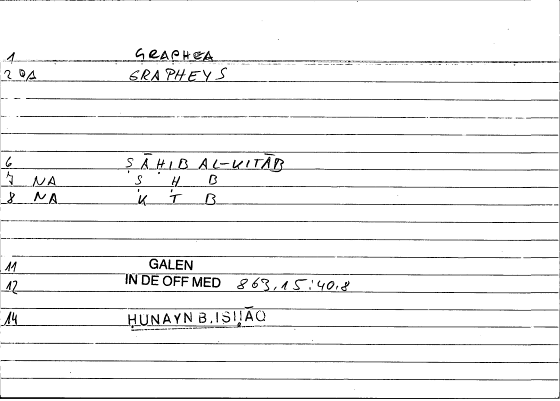 1 GRAPHEA
2 0A GRAPHEYS
6 ṢĀḤIB AL-KITĀB
7 NA Ṣ Ḥ B
8 NA K T B
11 GALEN
12 IN DE OFF MED 863,15:40,8
14 ḤUNAYN B. ISḤĀQ